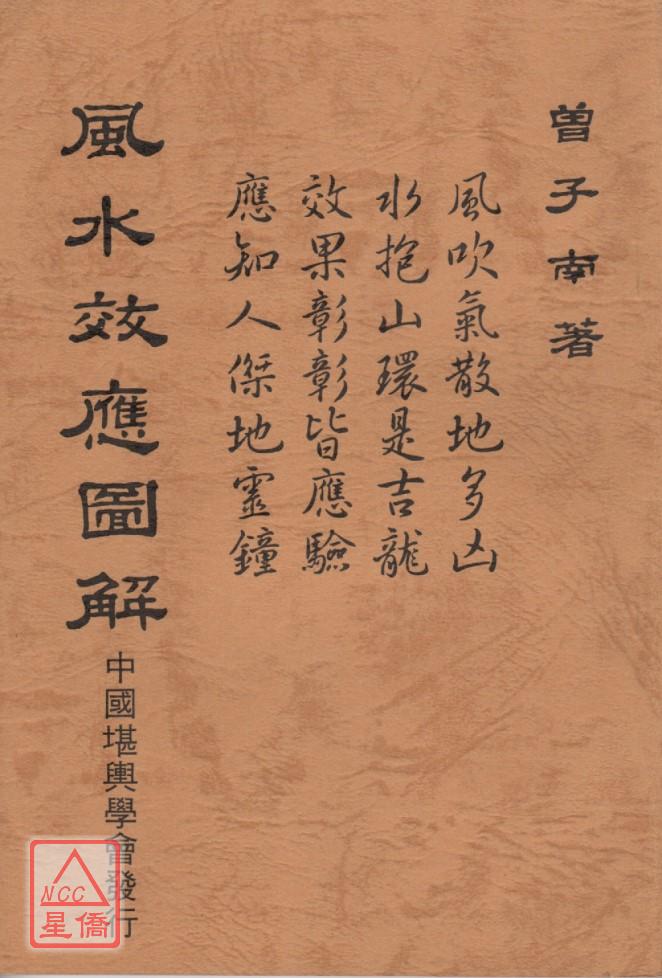 曾子南著
風吹氣散地多凶
水抱山環是吉龍
效果彰彰皆應驗
應知人傑地靈鐘
風水效應圖解
中國堪輿學會發行
NCC
星僑